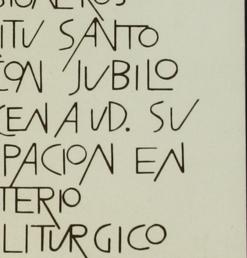 SIONEROS
ITU SANTO
CON JUBILO
CEN A UD. SU
PACION EN
TERIO
LITURGICO